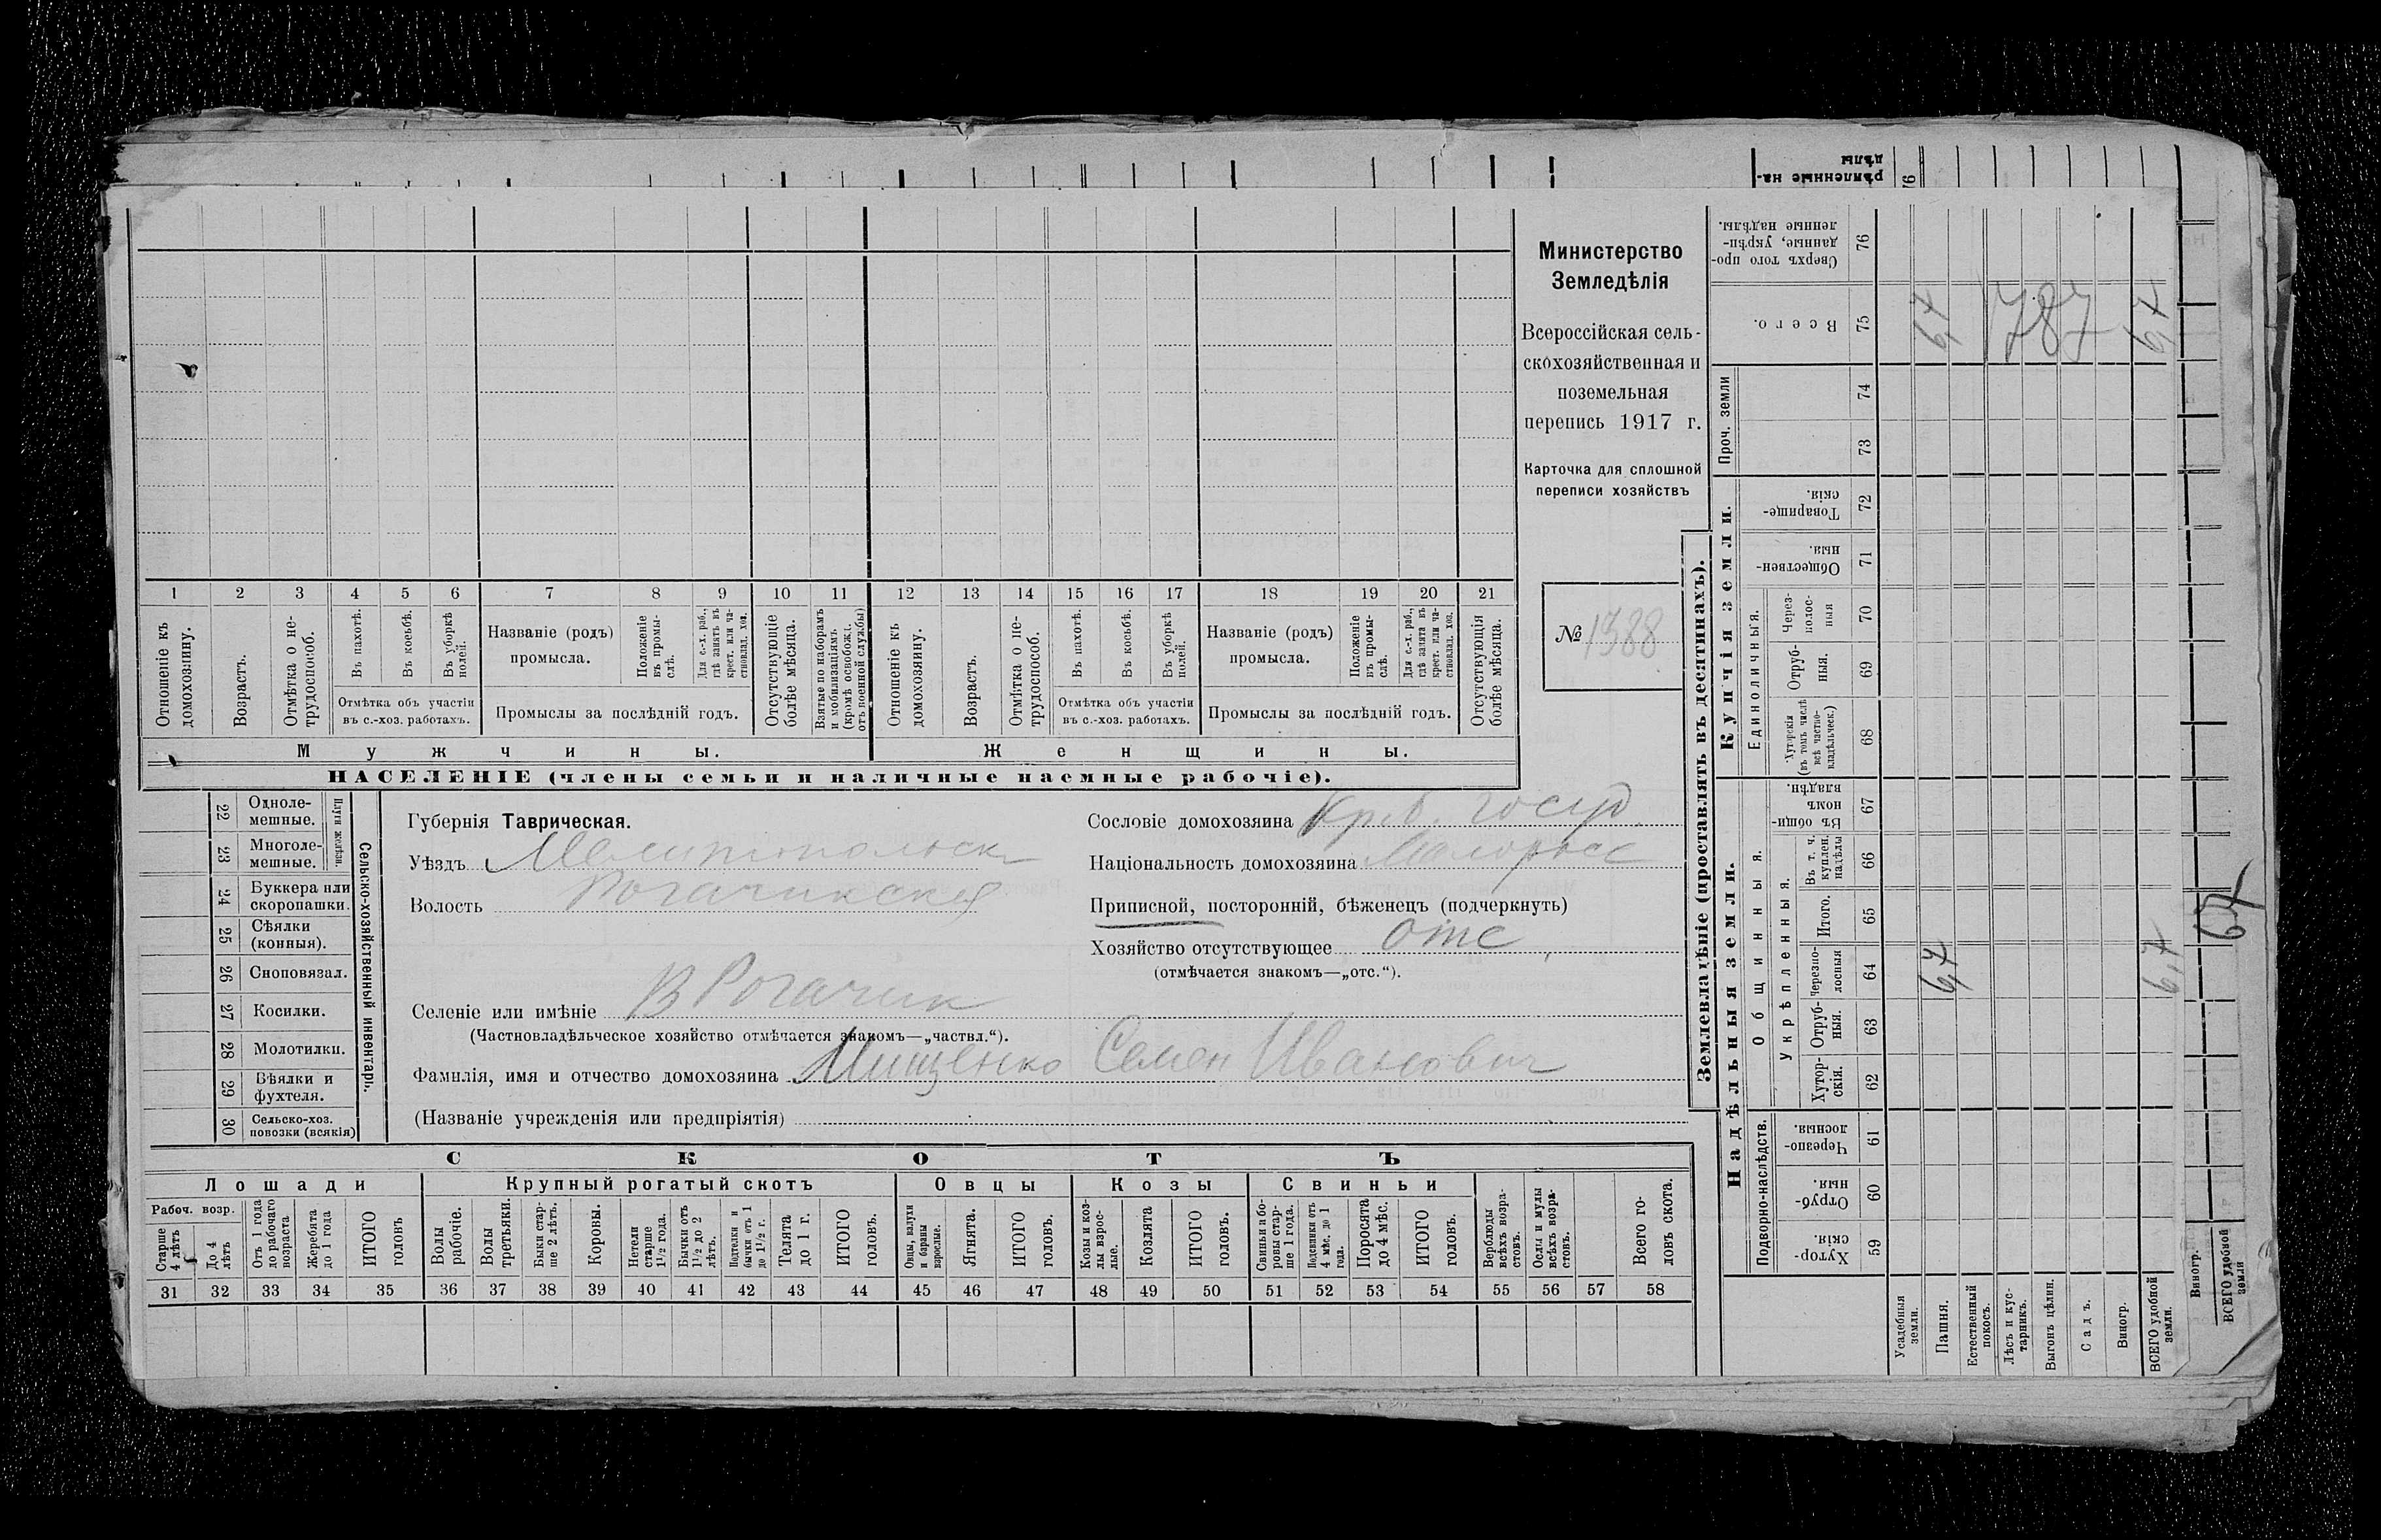 Министерство
Земледѣлія
Всероссійская сель-
скохозяйственная и
поземельная
перепись 1917 г.
Карточка для сплошной
переписи хозяйствъ
№ 1388
1 2 3 4 5 6 7 8 9 10 11 12 13 14 15 16 17 18 19 20 21
Отношеніе къ домохозяину.
Возрастъ.
Отмѣтка о не-трудоспособ.
Въ пахотѣ.
Въ косьбѣ.
Въ уборкѣ полей.
Отмѣтка объ участіи
въ с.-хоз. работахъ.
Названіе (родъ)
промысла.
Положеніе въ промы-слѣ.
Для с.-х. раб., гдѣ занятъ въ крест. или ча-стновлад. хоз.
Промыслы за послѣдній годъ.
Отсутствующіе болѣе мѣсяца.
Взятые по наборамъ и мобилизаціямъ (кромѣ освобожд. отъ военной службы)
Отношеніе къ домохозяину.
Возрастъ.
Отмѣтка о не-трудоспособ.
Въ пахотѣ.
Въ косьбѣ.
Въ уборкѣ полей.
Отмѣтка объ участіи
въ с.-хоз. работахъ.
Названіе (родъ)
промысла.
Положеніе въ промы-слѣ.
Для с.-х. раб., гдѣ занята въ крест. или ча-стновлад. хоз.
Промыслы за послѣдній годъ.
Отсутствующія болѣе мѣсяца.
Мужчины.
Женщины.
НАСЕЛЕНІЕ (члены семьи и наличные наемные рабочіе).
Сельско-хозяйственный инвентарь.
Плуги желѣзн.
22 Одноле-мешные.
23 Многоле-мешные.
24 Буккера или скоропашки.
25 Сѣялки (конныя).
26 Сноповязал.
27 Косилки.
28 Молотилки.
29 Вѣялки и фухтеля.
30 Сельско-хоз. повозки (всякія)
Губернія Таврическая.
Уѣздъ Мелитопольск
Волость Рогачикская
Сословіе домохозяина Кр. б. госуд.
Національность домохозяина Малоросс
Приписной, посторонній, бѣженецъ (подчеркнуть)
Хозяйство отсутствующее отс
(отмѣчается знакомъ—„отс.“).
Селеніе или имѣніе В Рогачик
(Частновладѣльческое хозяйство отмѣчается знакомъ—„частвл.“).
Фамилія, имя и отчество домохозяина Мищенко Семен Иванович
(Названіе учрежденія или предпріятія)
СКОТЪ
Лошади
Крупный рогатый скотъ
Овцы
Козы
Свиньи
Рабоч. возр.
Старше 4 лѣтъ
До 4 лѣтъ
Отъ 1 года до рабочаго возраста
Жеребята до 1 года
ИТОГО головъ
Волы рабочіе.
Волы третьяки.
Быки стар-ше 2 лѣтъ.
Коровы.
Нетели старше 1½ года.
Бычки отъ 1½ до 2 лѣтъ.
Подтелки и бычки отъ 1 до 1½ г.
Телята до 1 г.
ИТОГО головъ.
Овцы, валухи и бараны взрослые.
Ягнята.
ИТОГО головъ.
Козы и коз-лы взрос-лые.
Козлята
ИТОГО головъ.
Свиньи а бо-ровы стар-ше 1 года.
Подсвинки отъ 4 мѣс. до 1 года.
Поросята до 4 мѣс.
ИТОГО головъ.
Верблюды всѣхъ возра-стовъ.
Ослы и мулы всѣхъ возра-стовъ.
Всего го-ловъ скота.
31 32 33 34 35 36 37 38 39 40 41 42 43 44 45 46 47 48 49 50 51 52 53 54 55 56 57 58
Землевладѣніе (проставлять въ десятинахъ).
Купчія земли.
Надѣльныя земли.
Проч. земли
Единоличныя.
Общинныя.
Укрѣпленныя.
Подворно-наслѣдств.
Сверхъ того про-данные, укрѣп-ленные надѣлы. 76
Всего. 75
74
73
Товарище-скія. 72
Обществен-ныя. 71
Через-полос-ныя 70
Отруб-ныя. 69
Хуторскія (въ томъ числѣ всѣ частно-владѣльческ.) 68
Въ общин-номъ владѣн. 67
Въ т. ч. куплен. надѣлы 66
Итого. 65
Черезпо-лосныя 64
Отруб-ныя. 63
Хутор-скія. 62
Черезпо-лосныя. 61
Отруб-ныя. 60
Хутор-скія. 59
Усадебныя земли.
Пашня.
Естественный покосъ.
Лѣсъ и кус-тарникъ.
Выгонъ цѣлин.
Садъ.
Виногр.
ВСЕГО удобной земли.
6,7
787
6,7
6,7
6,7
рѣпленные на-
дѣлы
76
67
Виногр.
ВСЕГО удобной земли